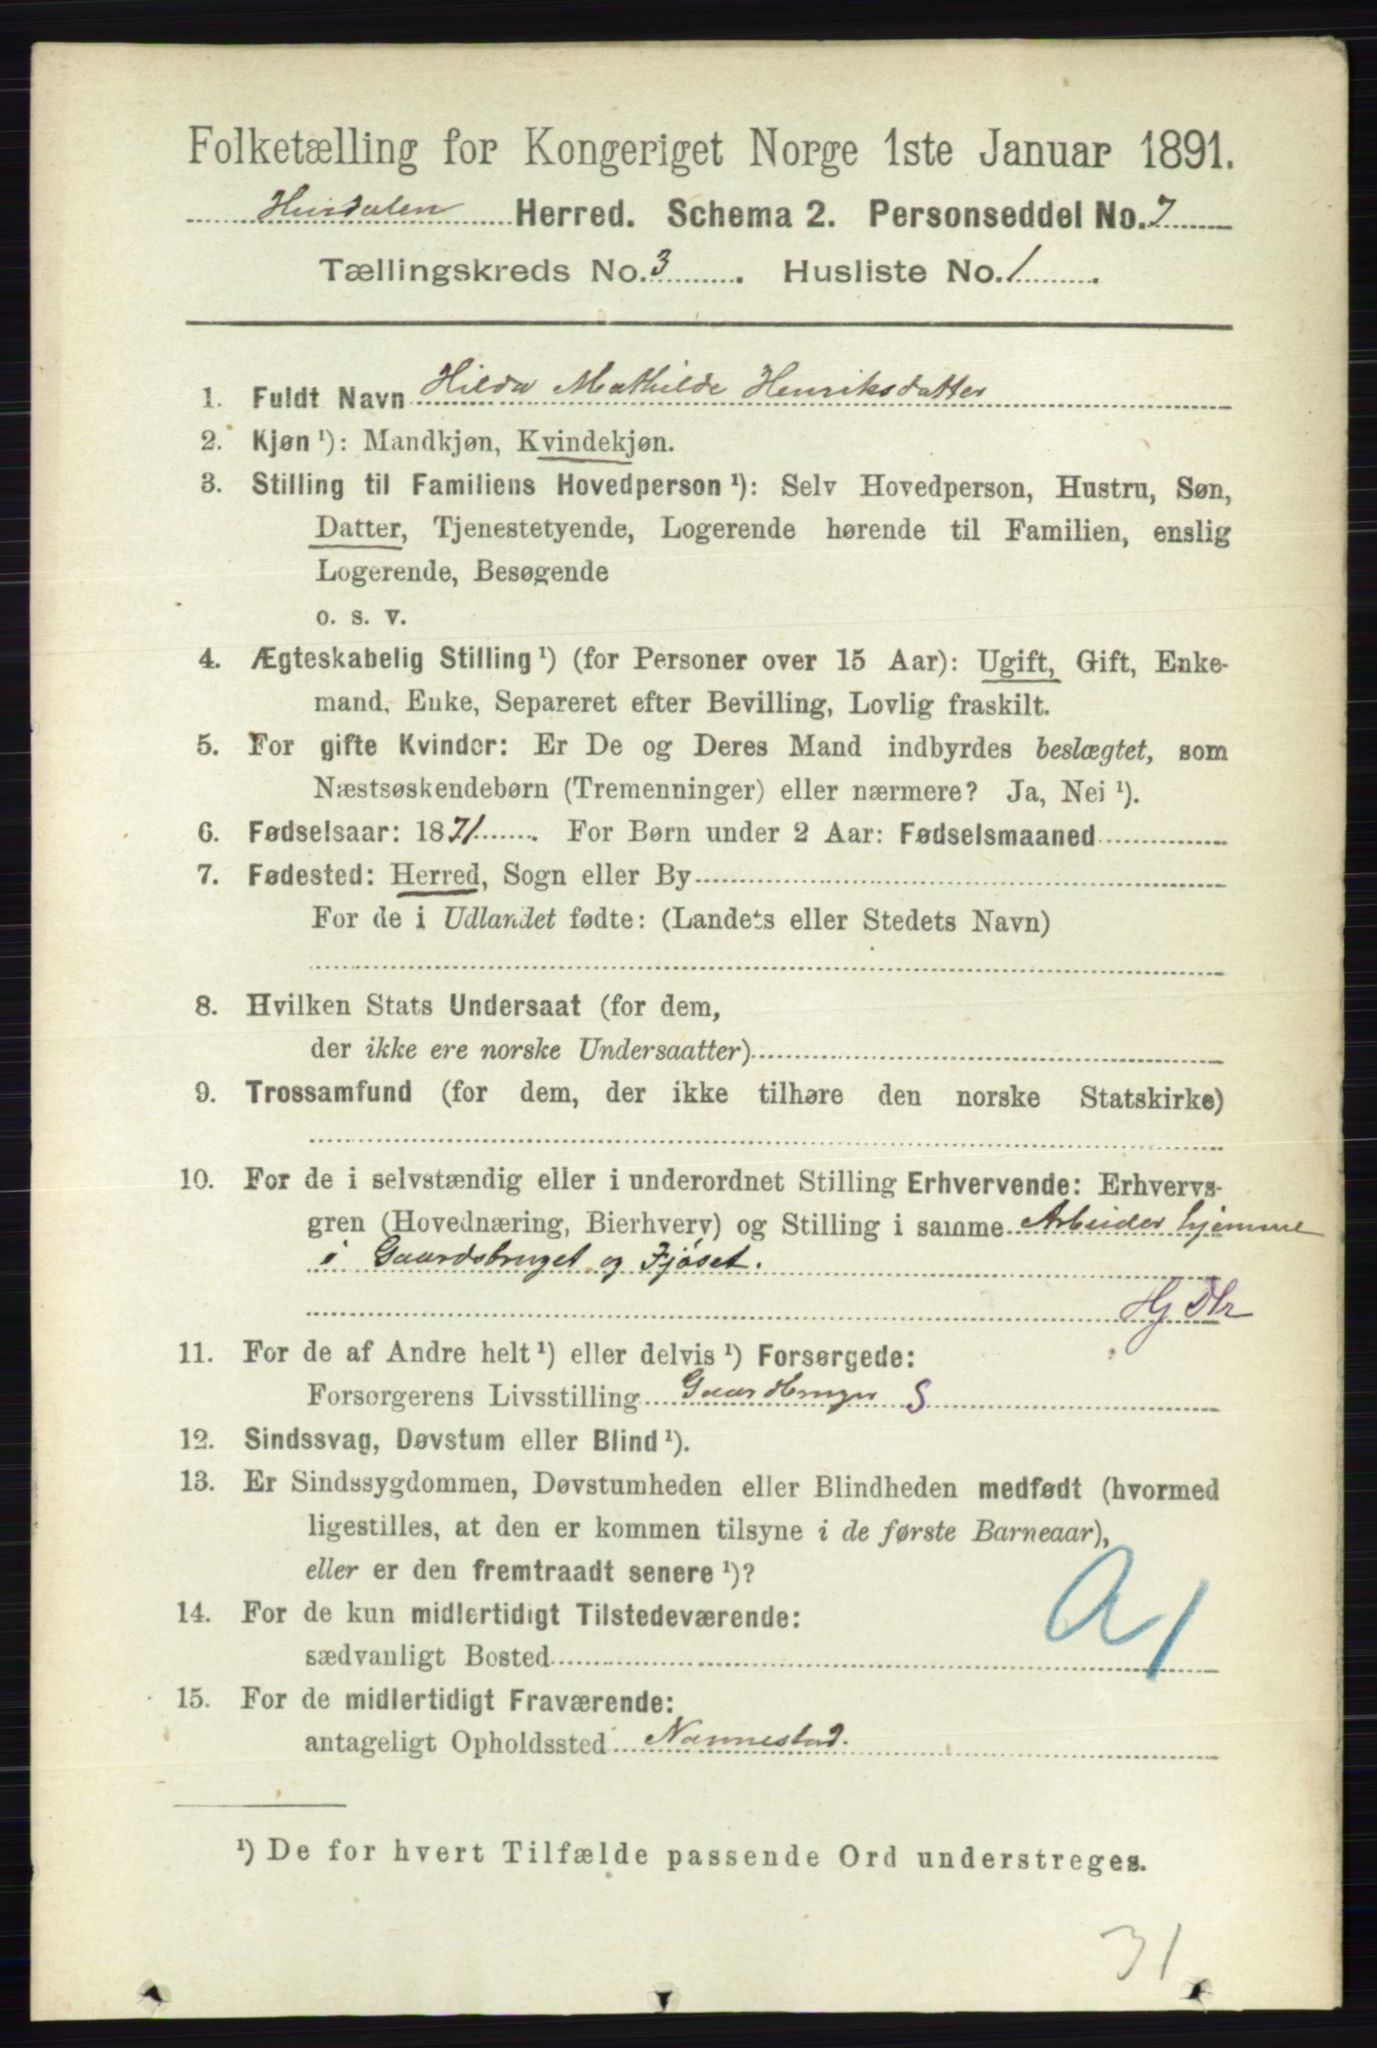 Folketælling for Kongeriget Norge 1ste Januar 1891.
Hurdalen Herred. Schema 2. Personseddel No. 7
Tællingskreds No. 3. Husliste No. 1.
1. Fuldt Navn Hilda Mathilde Henriksdatter
2. Kjøn ¹): Mandkjøn, Kvindekjøn.
3. Stilling til Familiens Hovedperson ¹): Selv Hovedperson, Hustru, Søn,
Datter, Tjenestetyende, Logerende hørende til Familien, enslig
Logerende, Besøgende
o. s. v.
4. Ægteskabelig Stilling ¹) (for Personer over 15 Aar): Ugift, Gift, Enke-
mand, Enke, Separeret efter Bevilling, Lovlig fraskilt.
5. For gifte Kvinder: Er De og Deres Mand indbyrdes beslægtet, som
Næstsøskendebørn (Tremenninger) eller nærmere? Ja, Nei ¹).
6. Fødselsaar: 1871. For Børn under 2 Aar: Fødselsmaaned
7. Fødested: Herred, Sogn eller By
For de i Udlandet fødte: (Landets eller Stedets Navn)
8. Hvilken Stats Undersaat (for dem,
der ikke ere norske Undersaatter)
9. Trossamfund (for dem, der ikke tilhøre den norske Statskirke)
10. For de i selvstændig eller i underordnet Stilling Erhvervende: Erhvervs-
gren (Hovednæring, Bierhverv) og Stilling i samme Arbeider hjemme
i Gaardsbruget og Fjøset.
Hj Dtr
11. For de af Andre helt ¹) eller delvis ¹) Forsørgede:
Forsorgerens Livsstilling Gaardbruger S
12. Sindssvag, Døvstum eller Blind ¹).
13. Er Sindssygdommen, Døvstumheden eller Blindheden medfødt (hvormed
ligestilles, at den er kommen tilsyne i de første Barneaar),
eller er den fremtraadt senere ¹)?
A1
14. For de kun midlertidigt Tilstedeværende:
sædvanligt Bosted
15. For de midlertidigt Fraværende:
antageligt Opholdssted Nannestad.
¹) De for hvert Tilfælde passende Ord understreges.
31